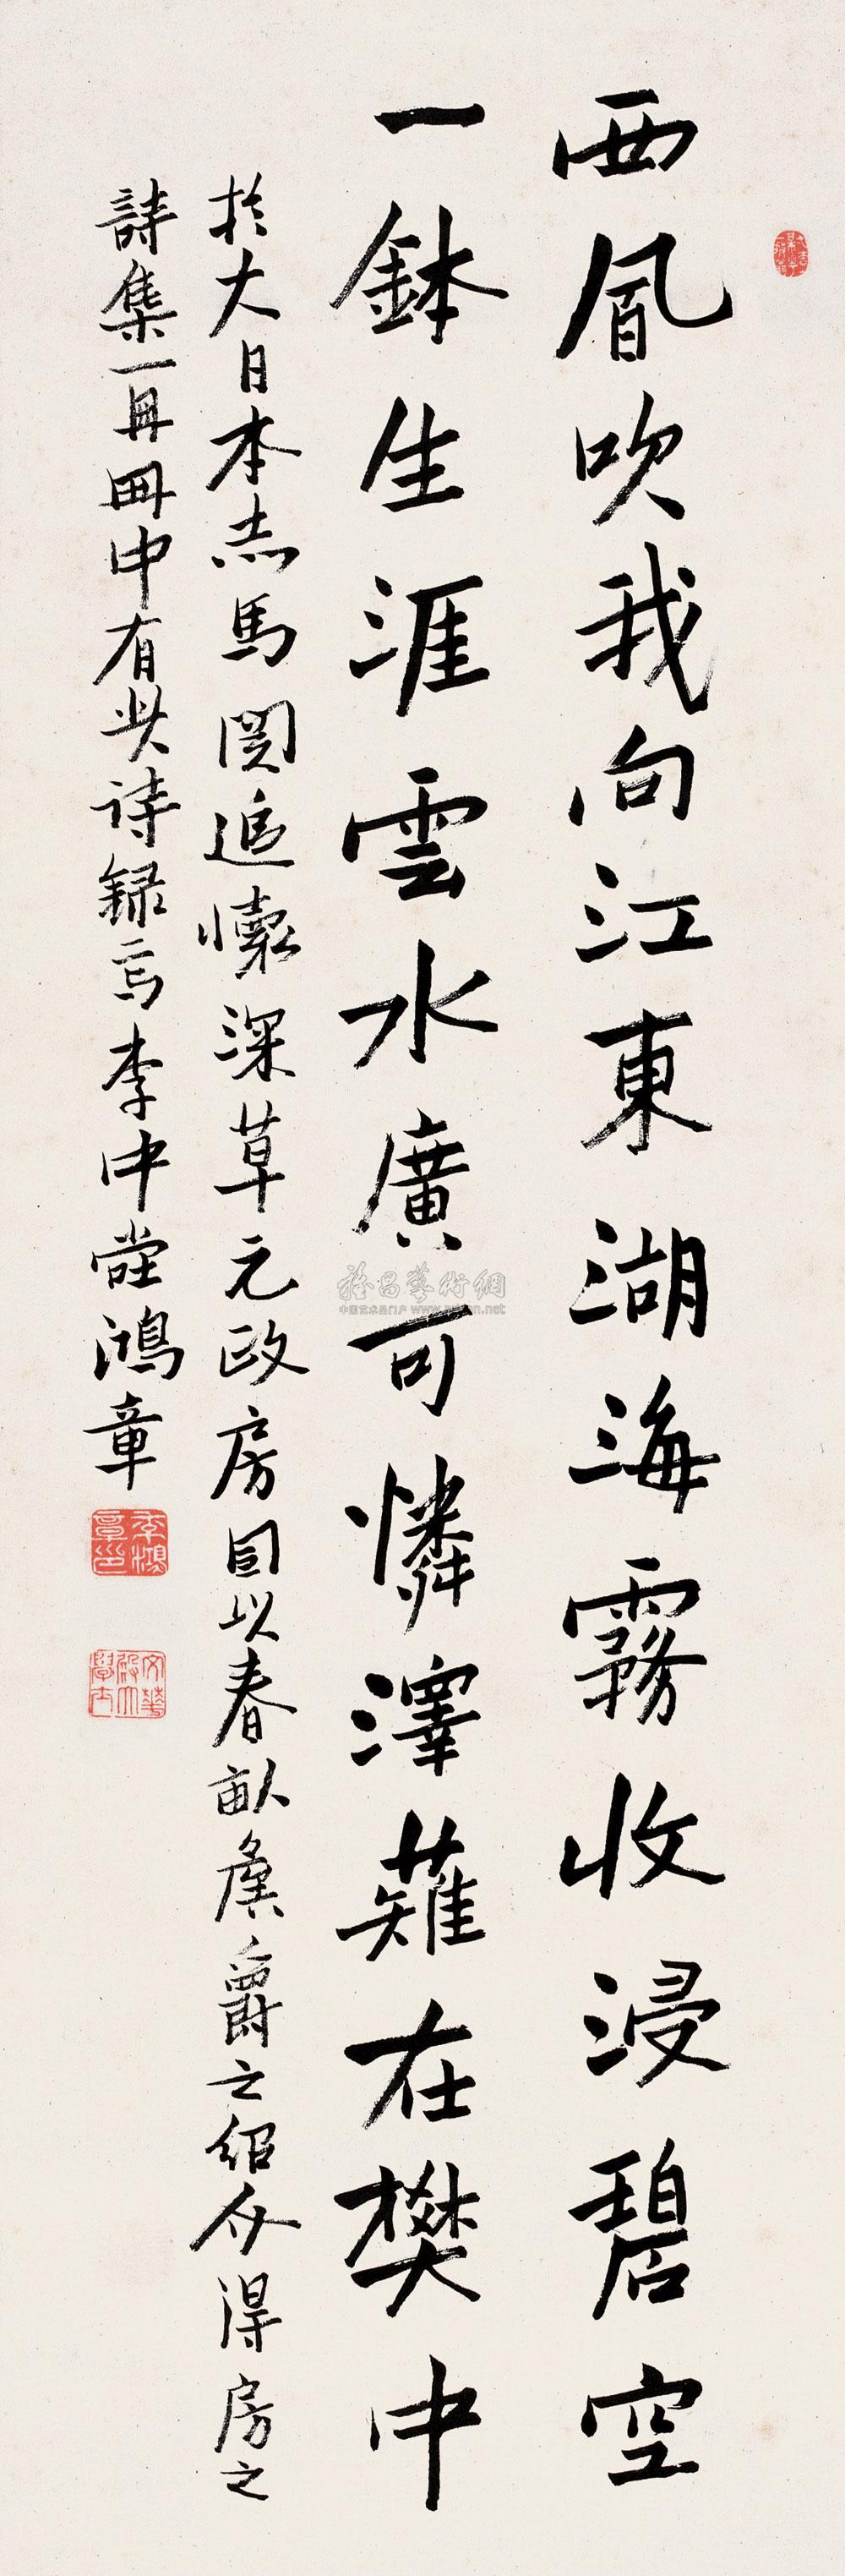 西風吹我向江東湖海霧收浸碧空
一鉢生涯雲水廣可憐澤蕹在樊中
於大日本志馬関追懷深草元政房目以春畝侯爵之紹介得房之
詩集一再冊中有此詩録焉李中堂鴻章
李鴻章印
文華殿大學士